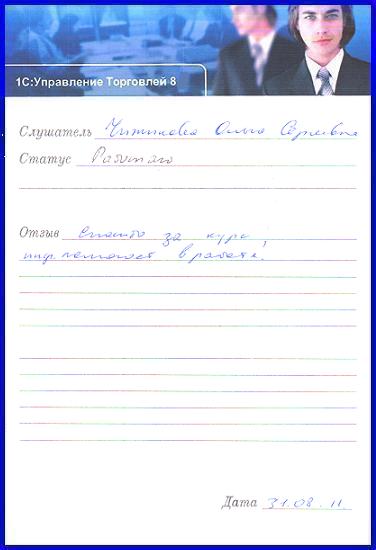 1С:Управление Торговлей 8
Слушатель Ольга Сергеевна
Статус Работаю
Отзыв Спасибо за курс,
инф. помогает в работе.
Дата 31.08.11.